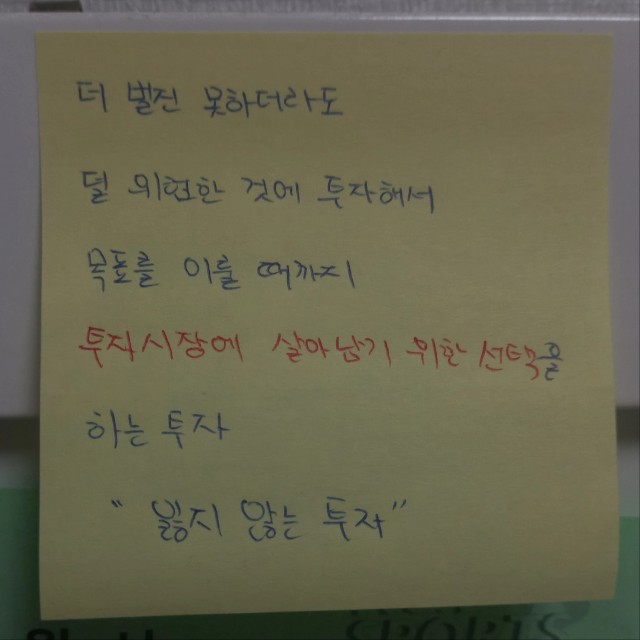 더 벌진 못하더라도
덜 위험한 것에 투자해서
목표를 이룰 때까지
투자시장에 살아남기 위한 선택을
하는 투자
“ 잃지 않는 투자”